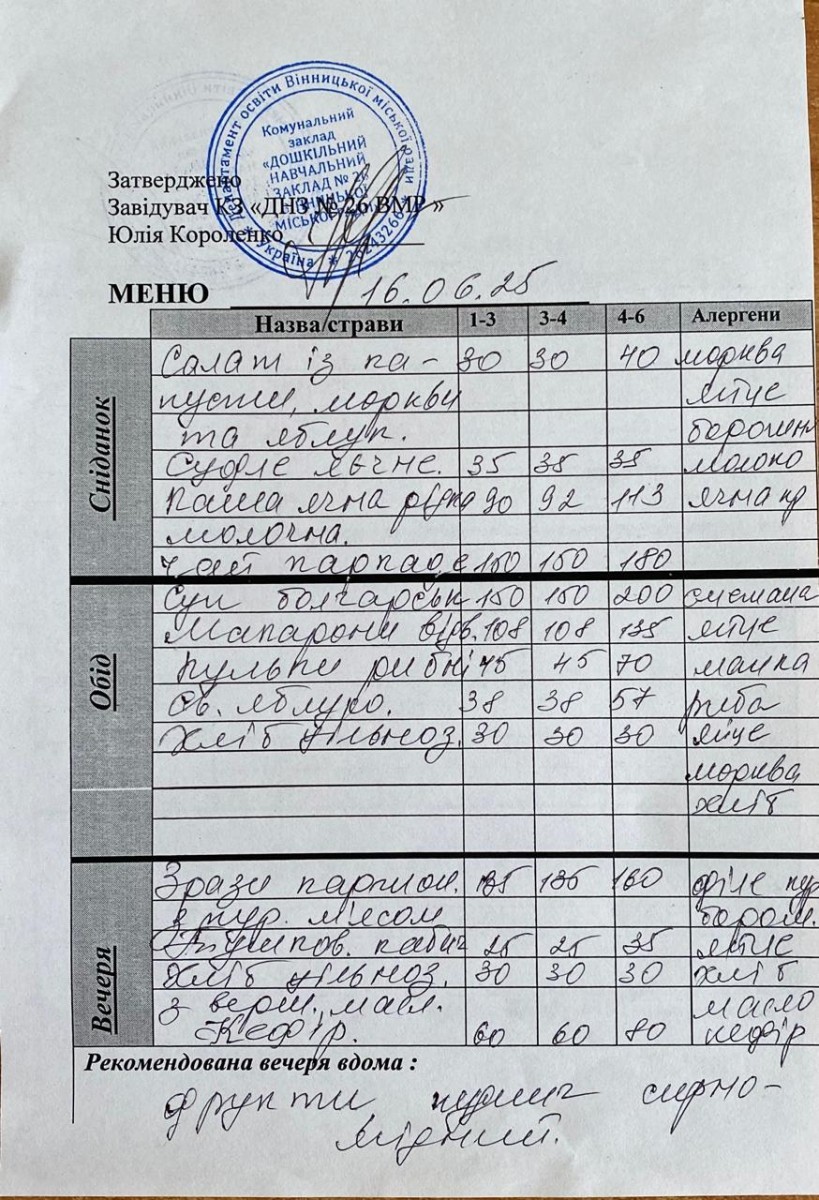 Департамент освіти Вінницької міської ради
Комунальний
заклад
«ДОШКІЛЬНИЙ
НАВЧАЛЬНИЙ
ЗАКЛАД № 26
ВІННИЦЬКОЇ
МІСЬКОЇ
* Україна * 26243266
Затверджено
Завідувач КЗ «ДНЗ № 26 ВМР»
Юлія Короленко
МЕНЮ 16.06.25
Назва страви 1-3 3-4 4-6 Алергени
Сніданок
Салат із ка- 30 30 40 морква
пусти, моркви яйце
та яблук. борошн
Суфле яєчне. 35 35 35 молоко
Каша ячна рідка 90 92 113 ячна кр
молочна.
Чай каркаде 150 150 180
Обід
Суп болгарськ 150 150 200 сметана
Макарони відв. 108 108 135 яйце
Кульки рибні 45 45 70 манка
Св. яблуко. 38 38 57 риба
Хліб цільноз. 30 30 30 яйце
морква
хліб
Вечеря
Зрази картоп. 135 135 160 філе кур
з кур. м'ясом борош.
25 25 35 яйце
Хліб цільноз. 30 30 30 хліб
з верш. масл. масло
Кефір. 60 60 80 кефір
Рекомендована вечеря вдома :
фрукти, пудинг сирно-